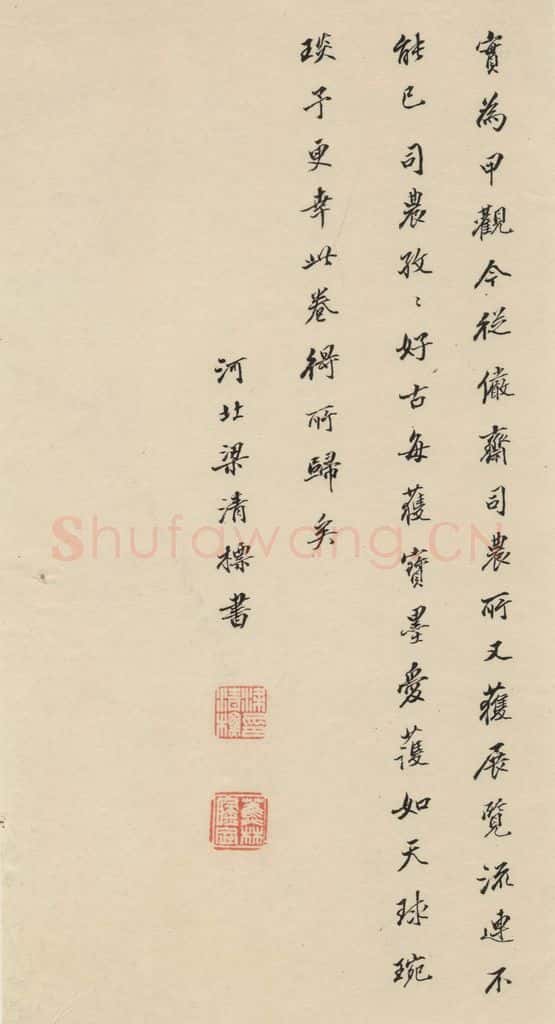 實為甲觀今從儼齋司農所又獲展覽流連不
能已司農孜〻好古每蒦寶墨愛護如天球琬
琰予更幸此卷得所歸矣
河北梁清標書
梁清標印
蕉林
Shufawang.CN